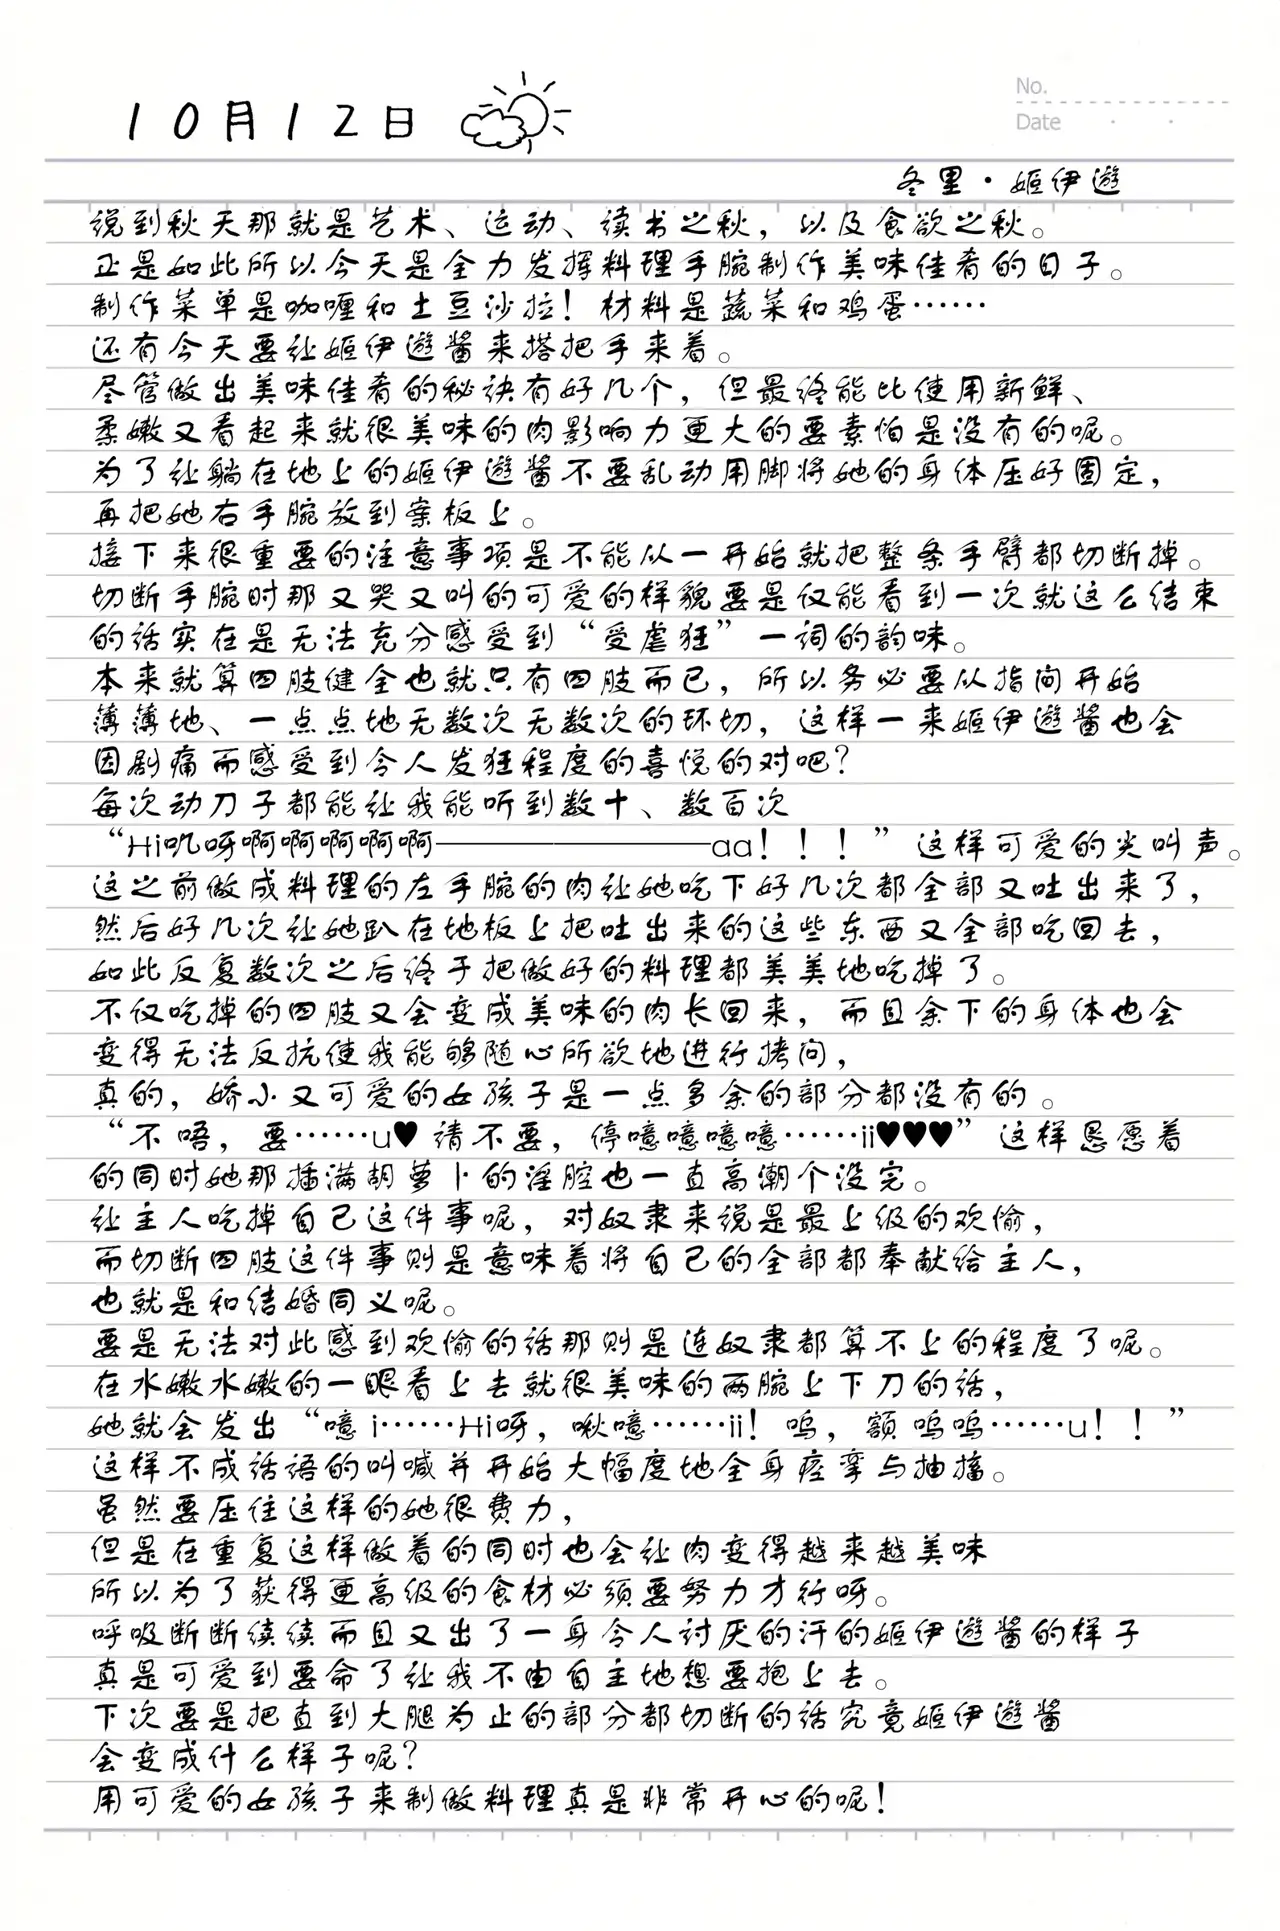 10月12日
No.
Date
冬里·姬伊遊
说到秋天那就是艺术、运动、读书之秋，以及食欲之秋。
正是如此所以今天是全力发挥料理手腕制作美味佳肴的日子。
制作菜单是咖喱和土豆沙拉！材料是蔬菜和鸡蛋……
还有今天要让姬伊遊酱来搭把手来着。
尽管做出美味佳肴的秘诀有好几个，但最终能比使用新鲜、
柔嫩又看起来就很美味的肉影响力更大的要素怕是没有的呢。
为了让躺在地上的姬伊遊酱不要乱动用脚将她的身体压好固定，
再把她右手腕放到案板上。
接下来很重要的注意事项是不能从一开始就把整条手臂都切断掉。
切断手腕时那又哭又叫的可爱的样貌要是仅能看到一次就这么结束
的话实在是无法充分感受到“受虐狂”一词的韵味。
本来就算四肢健全也就只有四肢而已，所以务必要从指间开始
薄薄地、一点点地无数次无数次的环切，这样一来姬伊遊酱也会
因剧痛而感受到令人发狂程度的喜悦的对吧？
每次动刀子都能让我能听到数十、数百次
“Hi叽呀啊啊啊啊啊———————aa！！！”这样可爱的尖叫声。
这之前做成料理的左手腕的肉让她吃下好几次都全部又吐出来了，
然后好几次让她趴在地板上把吐出来的这些东西又全部吃回去，
如此反复数次之后终于把做好的料理都美美地吃掉了。
不仅吃掉的四肢又会变成美味的肉长回来，而且余下的身体也会
变得无法反抗使我能够随心所欲地进行拷问，
真的，娇小又可爱的女孩子是一点多余的部分都没有的。
“不唔，要……u♥請不要，停噫噫噫噫……ii♥♥♥”这样恳愿着
的同时她那插满胡萝卜的淫腔也一直高潮个没完。
让主人吃掉自己这件事呢，对奴隶来说是最上级的欢愉，
而切断四肢这件事则是意味着将自己的全部都奉献给主人，
也就是和结婚同义呢。
要是无法对此感到欢愉的话那则是连奴隶都算不上的程度了呢。
在水嫩水嫩的一眼看上去就很美味的两腕上下刀的话，
她就会发出“噫i……Hi呀，啾噫……ii！呜，额呜呜……u！！”
这样不成话语的叫喊并开始大幅度地全身痉挛与抽搐。
虽然要压住这样的她很费力，
但是在重复这样做着的同时也会让肉变得越来越美味
所以为了获得更高级的食材必须要努力才行呀。
呼吸断断续续而且又出了一身令人讨厌的汗的姬伊遊酱的样子
真是可爱到要命了让我不由自主地想要抱上去。
下次要是把直到大腿为止的部分都切断的话究竟姬伊遊酱
会变成什么样子呢？
用可爱的女孩子来制做料理真是非常开心的呢！